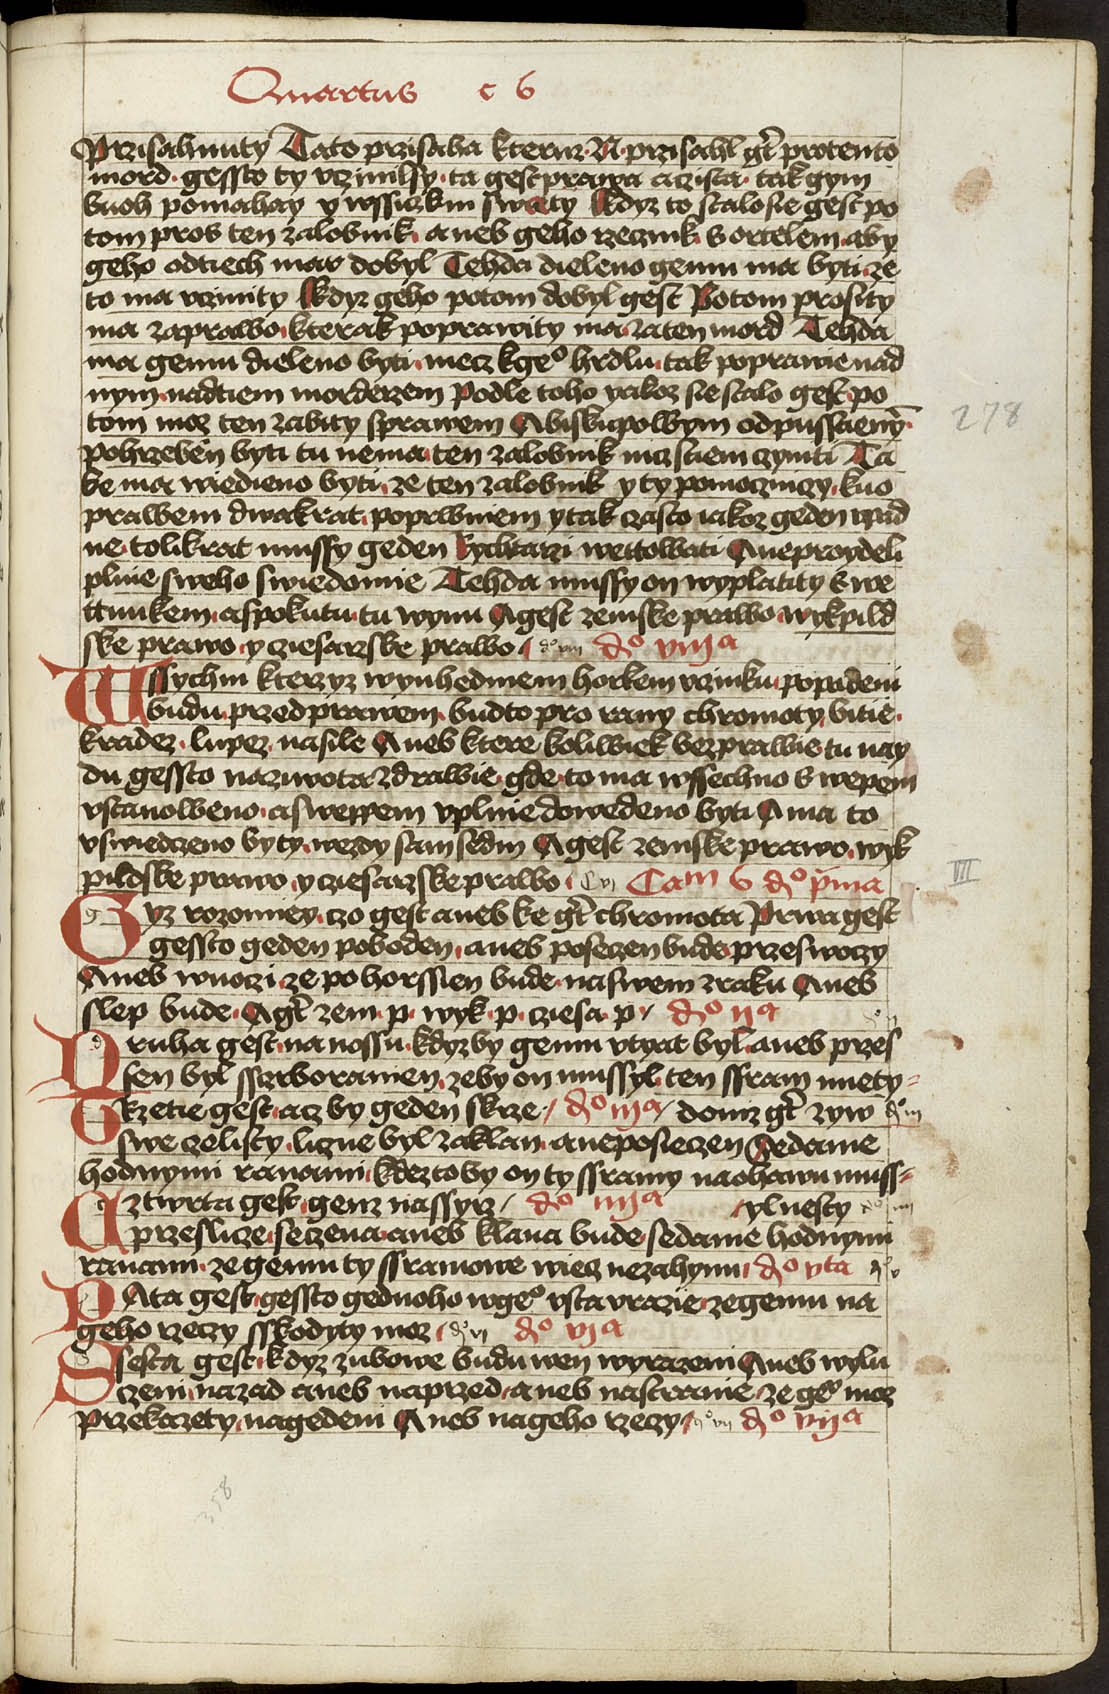 Quartus c 6
Przisahnuty Tato przisaha kteruz N przisahl gt protento
mord gessto ty vczinilsy ta gest prawa aczista tak gym
buoh pomahay y wssiczkni swaty Kdyz to stalosie gest po
tom pros ten zalobnik aneb geho rzecznik s ortelem aby
geho odtiech mar dobyl Tehda dieleno gemu ma byti ze
to ma vcziniti Kdyz geho potom dobyl gest Potom prosity
ma zaprawo kterak poprawity ma zaten mord Tehda
ma gemu dieleno byti mecz kgeº hrdlu tak poprawie nad
nym nadtiem morderzem Podle toho yakoz sie stalo gest po
tom moz ten zabity sprawem Abiskupowym odpusstieny
pohrzeben byti tu nema ten zalobnik nicz stiem czyniti Ta
ke ma wiedieno byti ze ten zalobnik y ty pomoczniczy kuo
prawem dwakrat poprwniem ytak czasto iakoz geden vpad
ne tolikrat mussy geden Rychtarzi wettowati Aneproydeli
plnie sweho swiedomie Tehda mussy on wyplatity swe
ttunkem aspokutu tu wynu Agest zemske prawo wykpild
ske prawo y cziesarzske prawo dº viii dº viiiª
Wssychni kterzyz wynhedniem horkem vczinku popadeni
budu przed prawem budto pro rany chromoty bitie
kradez lupez nasile Aneb ktere koliwiek bezprawie tu nay
du gessto nazywota zdrawie gde to ma wssechno s wepem
vstanoweno aswepem vplnie dowedeno byti Ama to
vswiedczeno byty wezdy samsedm Agest zemske prawo wyk
pildske prawo y cziesarzske prawo C vi Cam 6 dº pma
Gyz rozomiey czo gest aneb ke gt chromota Prwa gest
gessto geden poboden aneb poseczen bude przes woczy
Aneb wuoczi ze pohorssien bude naswem zraku Aneb
slep bude Agt zem p wyk p cziesa p dº iiª
Druha gest na nossu kdyzby gemu vtyat byl aneb przes
sen byl sskrboramen zeby on mussyl ten ssram miety
Trzetie gest acz by geden skrze dº iiiª domz gt zyw dº iii
swe czelisty liczne byl zaklan aneposieczen Sedanie
hodnymi ranami kdeztoby on ty ssramy naohawu muss
Cztwrta gest genz nassyrz dº iiiiª yl nesty dº iiii
przeslicze seczena aneb klana bude sedanie hodnymi
ranami ze gemu ty ssramowe wiecz nezahynu dº vta dº v
PAta gest gessto gednoho wgeº vsta vrazie zegemu na
geho rzeczy sskodyty moz dº vi dº viª
Ssesta gest kdyz zubowe budu wen wyrazeni Aneb wylu
czeni nazad aneb naprzed aneb nastranie ze geº moz
przekazety nagedeni Aneb nageho rzeczy dº vii dº viiª
278
VII
358